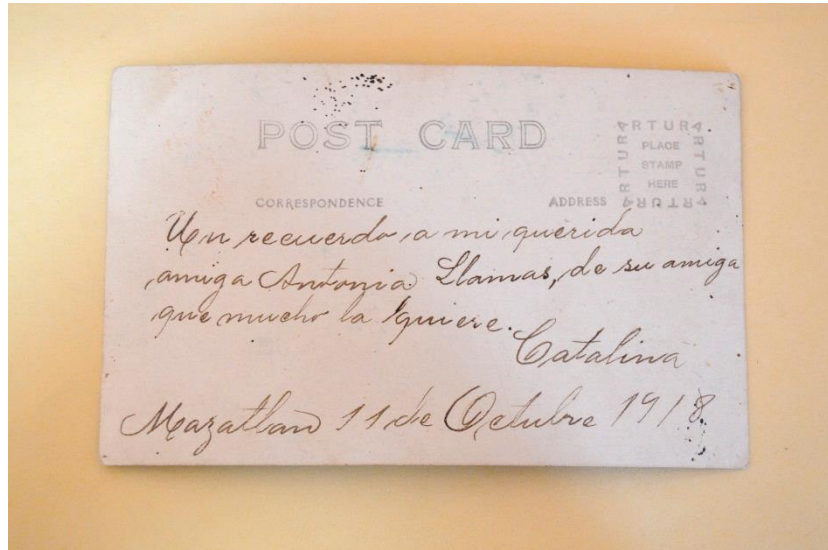 POST CARD
ARTURA
ARTURA
PLACE
STAMP
HERE
ARTURA
ARTURA
CORRESPONDENCE
ADDRESS
Un recuerdo a mi querida
amiga Antonia Llamas, de su amiga
que mucho la quiere.
Catalina
Mazatlan 11 de Octubre 1918.